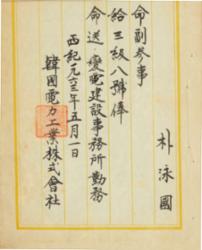 朴泳國
命副參事
給三級八號俸
命送·變電建設事務所勤務
西紀一九六三年五月一日
韓國電力工業株式會社